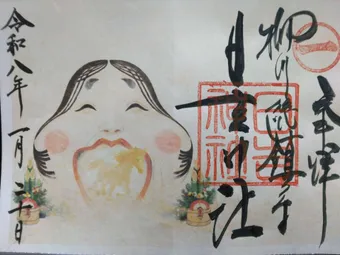 奉拝
柳川総鎮守
日吉神社
日吉神社
令和八年一月二十日